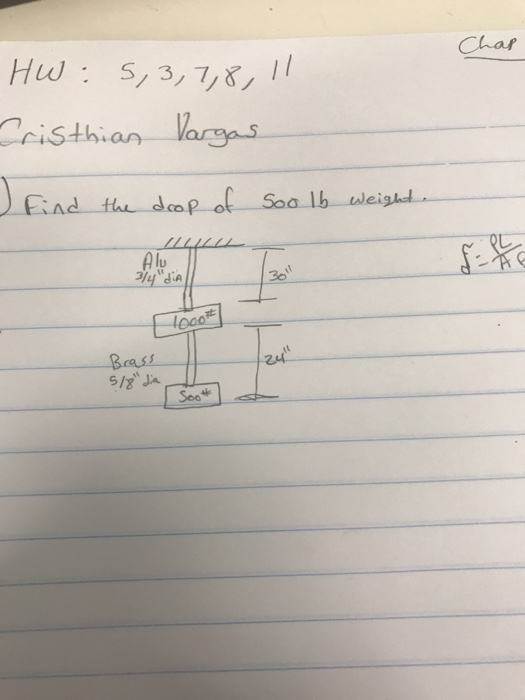 Chap
HW : 5, 3, 7, 8, 11
Cristhian Vargas
) Find the drop of 500 lb weight.
Alu
3/4" dia
30"
δ = PL
A
1000#
Brass
5/8" dia
24"
500#